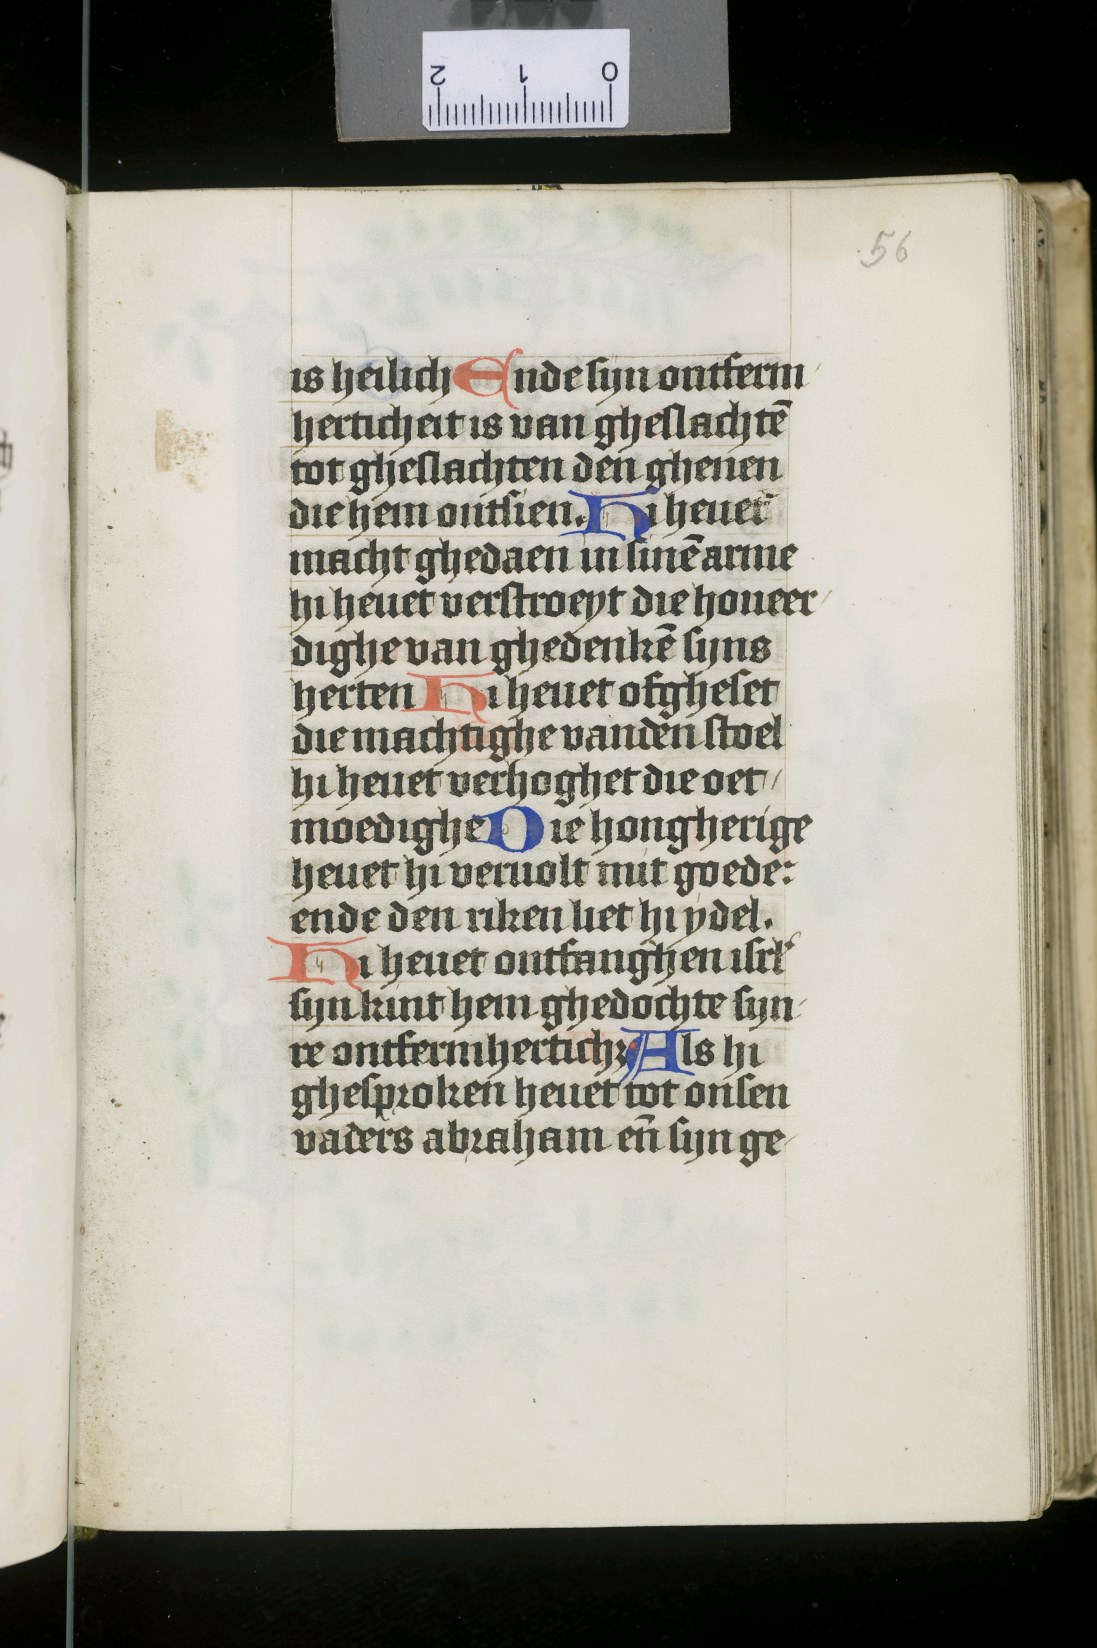 2 1 0
56
is heilich Ende syn ontferm
herticheit is van gheslachtē
tot gheslachten den ghenen
die hem ontsien. Hi heuet
macht ghedaen in sinē arme
hi heuet verstroeyt die houeer
dighe van ghedenkē syns
herten Hi heuet ofgheset
die machtighe vanden stoel
hi heuet verhoghet die oet//
moedighe Die hongherige
heuet hi veruolt mit goede:
ende den riken liet hi ydel.
Hi heuet ontfanghen isrl'
syn kint hem ghedochte syn
re ontfermhertichz Als hi
ghesproken heuet tot onsen
vaders abraham eñ syn ge